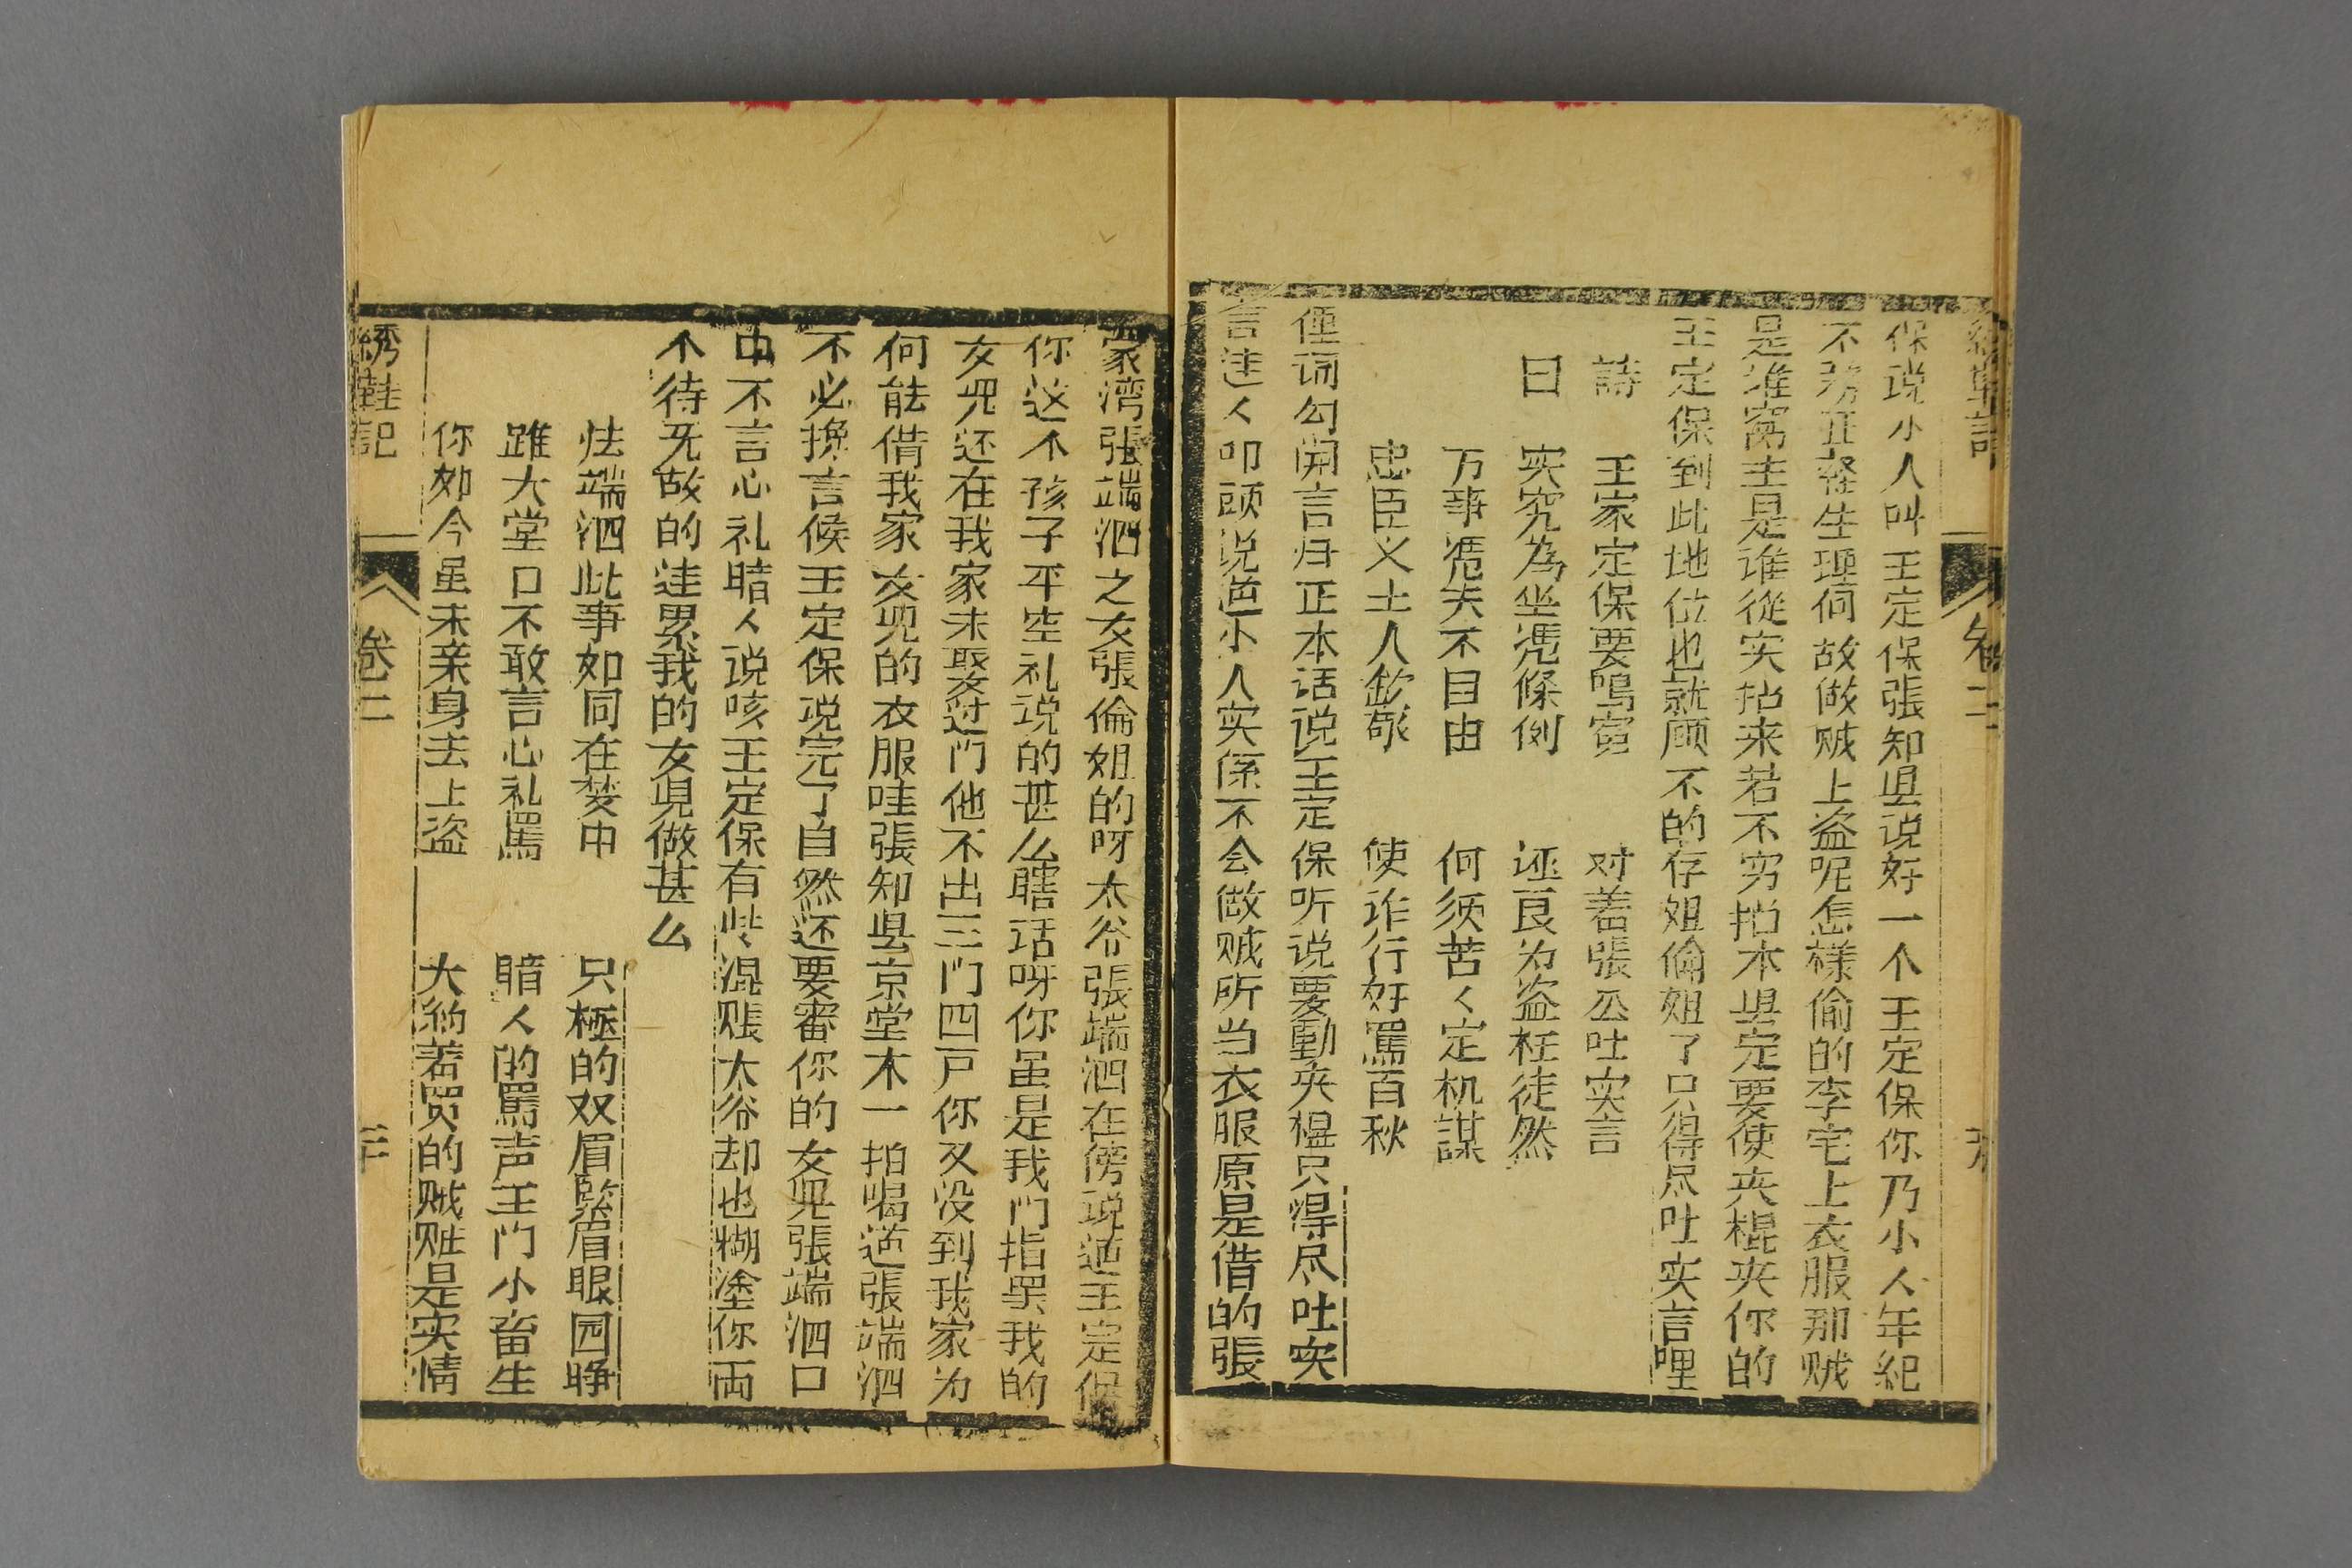 绣鞋記
卷二
保说小人叫王定保張知县说好一个王定保你乃小人年纪
不务正経生理何故做贼上盗呢怎樣偷的李宅上衣服那贼
是谁窩主是谁從实招来若不穷招本县定要使夹棍夹你的
王定保到此地位也就顾不的存姐倫姐了只得尽吐实言哩
詩　王家定保要鳴寃　对着張公吐实言
曰　实究為坐凴條例　诬良为盗枉徒然
万事凴天不自由　何须苦〻定机謀
忠臣义士人欽敬　使诈行奸罵百秋
俚词勾開言归正本话说王定保听说要動夹棍只得尽吐实
言逹人叩頭说道小人实係不会做贼所当衣服原是借的張
家湾張端泗之女張倫姐的呀太爷張端泗在傍说道王定保
你这个孩子平空礼说的甚么瞎话呀你虽是我门指罢我的
女児还在我家未娶过门他不出三门四户你又没到我家为
何能借我家女児的衣服哇張知县京堂木一拍喝道張端泗
不必攙言候王定保说完了自然还要審你的女児張端泗口
中不言心礼暗〻说咳王定保有些混賬太爷却也糊塗你両
个待死故的逹累我的女児做甚么
怯端泗此事如同在梦中　只極的双眉竪眉眼园睁
雖大堂口不敢言心礼罵　暗〻的罵声王门小畜生
你如今虽未亲身去上盗　大約着贸的贼赃是实情
綉鞋記
卷二
二十